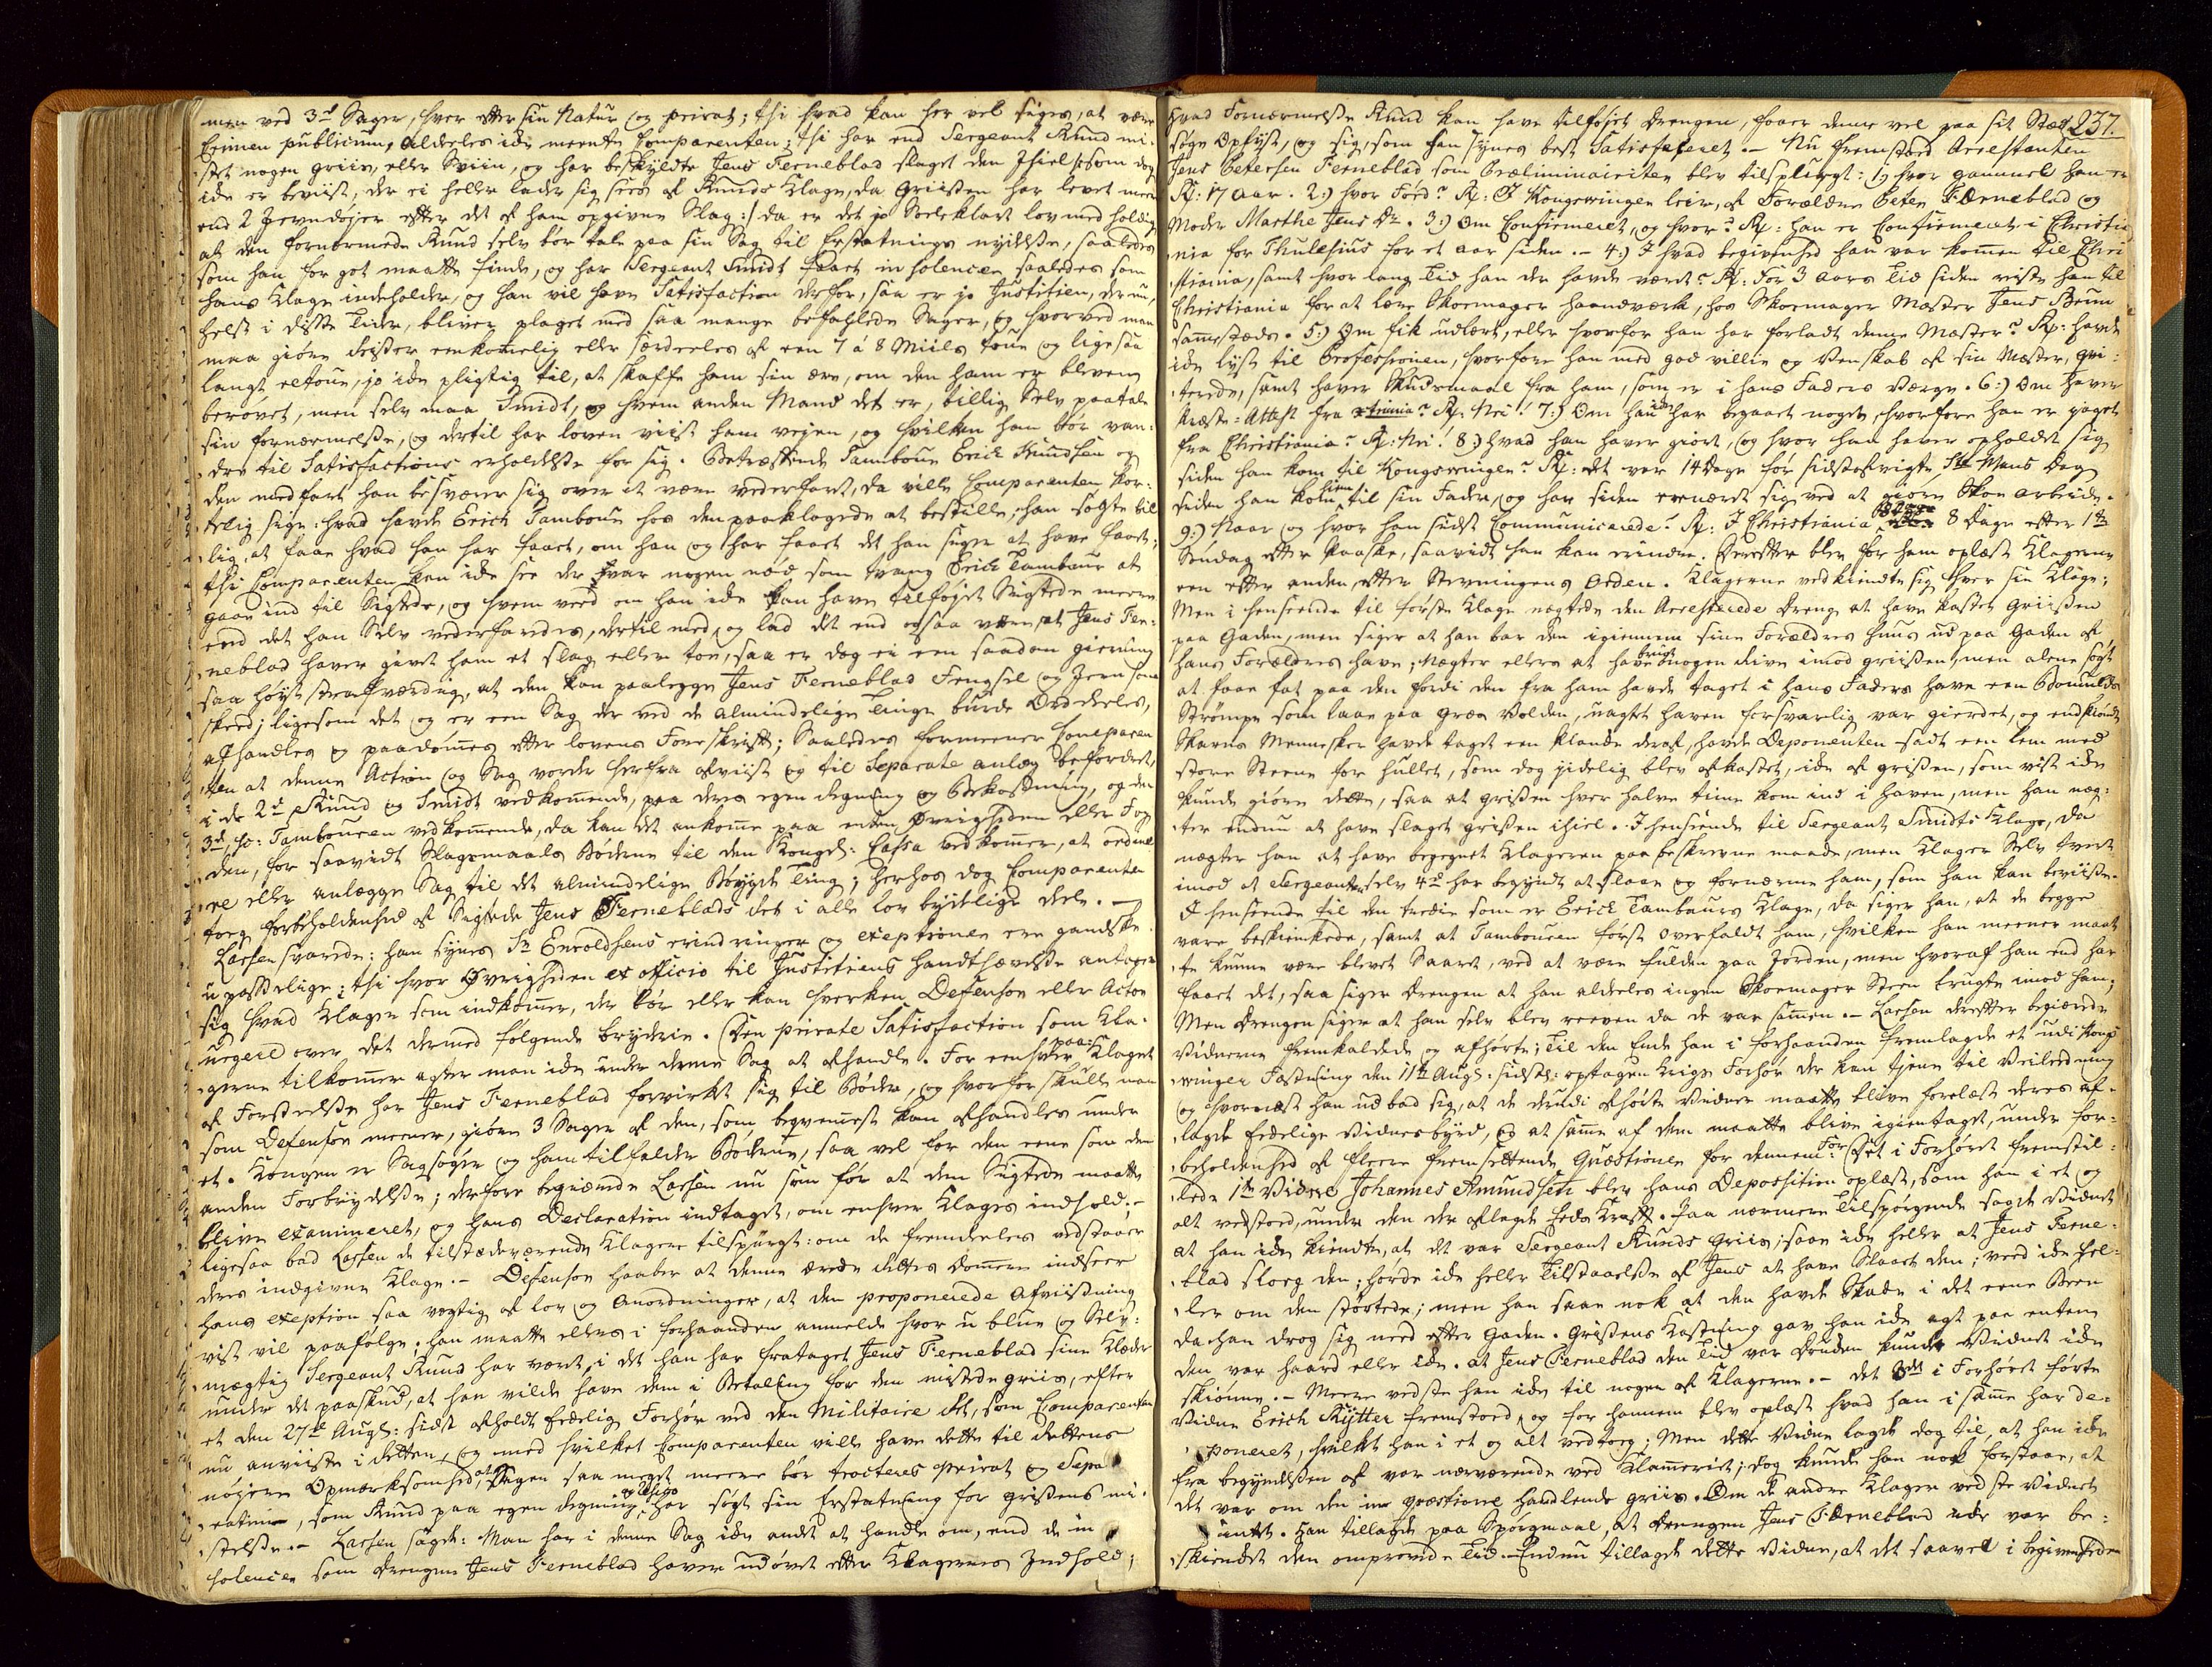 men ved 3de Sager, hver efter sin Natur og privat; thi hvad kan her vel siges, at være
Crimen publicum, aldeeles ide meente Comparenten; thi har end Sergeant Knud mi-
stet nogen griis, eller Sviin, og har beskyldte Jens Ferneblad slaget den Ihiel |:som dog
ide er beviist, der ei heller lader sig see af Knuds Klage, da Griisen har levet meer
end 2 Jevndøger efter det af ham opgivne Slag:| da er det jo Soeleklart lovmedholdig
at den fornærmede Knud selv bør tale paa sin Sag til Erstatnings nydelse, saaledes
som han for got maatte finde, og har Sergeant Smidt faaet insolencer saaledes som
hans Klage indeholder, og han vil have Satisfaction derfor, saa er jo Justitien, der nu,
helst i disse Tider, bliver plaget med saa mange befahlede Sager, og hvorved man
maa giøre Reiser eenkomelig eller særdeeles af een 7 á 8 Miils tour og ligesaa
langt retour, jo ide pligtig til, at skaffe ham sin ære, om den ham er bleven
berøvet, men selv maa Smidt, og hvem anden Mand det er, billig Selv paatale
sin fornærmelse, og dertil har loven viist ham vejen, og hvilken han bør van-
dre til Satisfactions erholdelse for sig. Betræffende Tambour Erick Knudsen og
den medfart han besværer sig over at være vederfart, da ville Comparenten kor-
telig sige: hvad havde Erich Tambour hos den paaklagede at bestille, han søgte vil-
lig, at faae hvad han har faaet, om han og har faaet det han siger at have faaet;
thi Comparenten kan ide see der var nogen nød som tvang Erick Tambour at
gaae ind til Sigtede, og hvem veed om han ide kan have tilføjet Sigtede meere
end det han Selv vederfaredes, dertil med, og lad det end ogsaa være, at Jens Fer-
neblad haver givet ham et slag eller toe, saa er dog ei een saadan gierning
saa høyst strafværdig, at den kan paalegge Jens Ferneblad Fengsel og Jern som
skeed; ligesom det og er een Sag der ved de almindelige Tinge burde
afhandles og paadømes efter lovens Foreskrift; Saaledes formeener Comparen-
ten at denne Action og Sag vorder herfra afviist og til Separate anlæg befordret,
i de 2de Knud og Smidt vedkomende, paa deres egen Regning og Bekostning, og den
3de, ho: Tambouren vedkomende, da kan det ankome paa enten Øvrigheden eller Fog
den, for saavidt Slagsmaals Bøderne til den Kongel: Cassa vedkomer, at ordine
re eller anlægge Sag til det almindelige Bøygde Ting; herhos dog Comparenten
tog forbeholdenhed af Sigtede Jens Ferneblads Ret i alle lov bydelige deele. -
Larsen svarede: han synes Sr Enevoldsens erindringer og exeptioner ere gandske
upasselige; thi hvor Øvrigheden ex officio til Justitiens Handthævelse antager
sig hvad Klager som indkomer, der bør eller kan hverken Defensor eller Actor
negere over det dermed følgende bryderie. Den private Satisfaction som Kla-
gerne tilkomer agter man ide under denne Sag at afhandle. For eenhver paa Klaget
af Forseelse har Jens Ferneblad forvirket sig til Bøder, og hvorfor skulle man
som Defensor meener, giøre 3 Sager af den, som begvemest kan afhandles under
et. Kongen er Sagsøger og ham tilfalder Bøderne, saa vel for den eene som den
anden Forbrydelse; derfore begiærede Larsen nu som før at den Sigtede maatte
blive examineret, og hans Declaration indtaget, om enhver Klages indhold; -
ligesaa bad Larsen de tilstædeværende Klagere tilspurgt: om de fremdeeles vedstaaer
deres indgivne Klage. - Defensor haaber at denne ærede Rettes Domere indseer
hans exeption saa vegtig af lov og Anordninger, at den proponerede Afviisning
vist vil paafølge; han maatte ellers i forhaanden anmelde hvor ublue og Selv-
mægtig Sergeant Knud har været, i det han har frataget Jens Ferneblad sine Klæder
under det paaskud, at han vilde have dem i Betaling for den mistede griis, efter
et den 27de Augs: sidst afholdt Eedelig Forhør ved den Militaire Ret, som Comparenten
nu anviiste i Retten, og med hvilket Comparenten ville have dette til Rettens
nøyere Opmærksomhed, at Sagen saa meget meere bør tracteres privat og Sepa
ratim, som Knud paa egen Regning og Risico har søgt sin Erstatning for griisens mi-
stelse. - Larsen sagde: Man har i denne Sag ide andt at handle om, end de in
solencer som Drengen Jens Ferneblad haver udøvet efter Klagernes Indhold;
237.
hvad Fornærmelse Knud kan have tilføjet Drengen, faaer denne vel paa sit Stæd
søge Oplyst, og sig, som han synes best Satisfaceret. - Nu fremstoed Arrestanten
Jens Petersen Ferneblad som Præliminariter blev tilspurgt: 1) hvor gammel han er
R: 17 aar. 2:) hvor Fød? R: I Kongsvingers leir, af Forældre Peter Ferneblad og
Moder Marthe Jens Dr. 3:) Om Confirmeret, og hvor? R: han er Confirmeret i Christia
nia for Thulesius for et aar siden. - 4:) I hvad begivenhed han var komen til Chri
stiania, samt hvor lang Tid han der havde været? R: For 3 aars Tid siden reiste han til
Christiania for at lære Skoemager haandværk, hos Skoemager Master Jens Brun
samestæds. 5:) Om fik udlært, eller hvorfor han har forladt denne Master? R: havde
ide lyst til Professionen, hvorfore han med god villie og Venskab af sin Mæster, qvi-
terede, samt haver Skudsmaal fra ham, som er i hans Faders værge. 6:) Om haver
Præste-Attest fra Xstiania? R: Nei! 7:) Om han ide har begaaet noget, hvorfore han er jaget
fra Christiania? R: Nei! 8:) hvad han haver giort, og hvor han haver opholdet sig
siden han kom til Kongsvinger? R: det var 14 Dage før sidstafvigte Ste Hans Dag
siden han kom hiem til sin Fader, og har siden ernæret sig ved at giøre Skoe arbeide.
9:) Naar og hvor han sidst Communicerede? R: I Christiania 8 Dage efter 1te
Søndag efter Paaske, saavidt han kan erindre. Derefter blev for ham oplæst Klagerne
een efter anden, efter Stevningens Orden. Klagerne vedkiendte sig hver sin Klage;
Men i henseende til første Klage nægtede den Arresterede Dreng at have kastet Griisen
paa Gaden, men siger at han bar den igiennem sine Forældres huus ud paa Gaden af
hans Forældres have; nægter ellers at have brugt nogen Kniv imod griisen, men alene søgt
at faae fat paa den fordi den fra ham havde taget i hans Faders have een Bomulds
Strømpe som laae paa græs Volden, uagtet haven forsvarlig var gierdet, og endskiøndt
Skarns Mennesker havde taget een Klande deraf, havde Deponenten sadt een lem med
store Steene for hullet, som dog jidelig blev afkastet, ide af grisen, som vist ide
kunde giøre dette, saa at grisen hver halve time kom ind i haven, men han næg-
ter endnu at have slaget grisen ihiel. I henseende til Sergeant Smidts Klage, da
nægter han at have begegnet Klageren paa beskrevne maade, men Klager Selv tvert
imod at Sergeanten selv 4de har begyndt at slaae og fornærme ham, som han kan bevise.
I henseende til den tredie som er Erick Tambours Klage, da siger han, at de begge
vare beskienkede, samt at Tambouren først overfaldt ham, hvilken han meener maat
te kunne være blevet Saaret, ved at være falden paa Jorden, men hvoraf han end har
faaet det, saa siger Drengen at han aldeeles ingen Skoemager Steen brugte imod ham;
Men Drengen siger at han selv blev reeven da de var samen. - Larsen derefter begiærede
Vidnerne fremkaldede og afhørte; Til den Ende han i forhaanden fremlagde et udi Kongs
vinger Fæstning den 11te Augs: sidstl: optagen Krigs Forhør der kan tjene til Veiledning
og hvornæst han udbad sig, at de derudi afhørte Vidner maatte blive forelæst deres af-
lagde Eedelige Vidnesbyrd, og at same af dem maatte blive igientaget, under for-
beholdenhed af fleere fremsettende Qvæstioner for dennem. For Det i Forhøret fremstil-
lede 1te Vidne Johannes Amundsen blev hans Deposition oplæst, som han i et og
alt vedstoed, under den der aflagde Eeds Kraft. Paa nærmere Tilspørgende sagde Vidnet
at han ide kiendte, at det var Sergeant Knuds griis, saae ide heller at Jens Ferne-
blad sloeg den; hørde ide heller Tilstaaelse af Jens at have Slaaet den; veed ide hel-
ler om den støttede; men han saae nok at den havde Skade i det eene Been
da han drog sig ned efter Gaden. Grisens Kastning gav han ide agt paa enten
den var haard eller ide. At Jens Ferneblad den Tid var Druken kunde Vidnet ide
skiønne. - Meere vedste han ide til nogen af Klagerne. - Det 3de i Forhøret førte
Vidne Erich Rytter fremstoed, og for hannem blev oplæst hvad han i same har de-
poneret, hvilket han i et og alt vedtog; Men dette Vidne lagde dog til, at han ide
fra begyndelsen af var nærværende ved Klameriet; dog kunde han nok forstaae, at
det var om den in qvæstione handlende griis. Om de andre Klager vedste Vidnet
intet. Han tillagde paa Spørgmaal, at Drengen Jens Ferneblad ide var be-
skienket den omprovede Tid. - Endnu tillagde dette Vidne, at det saavel i begivenheden